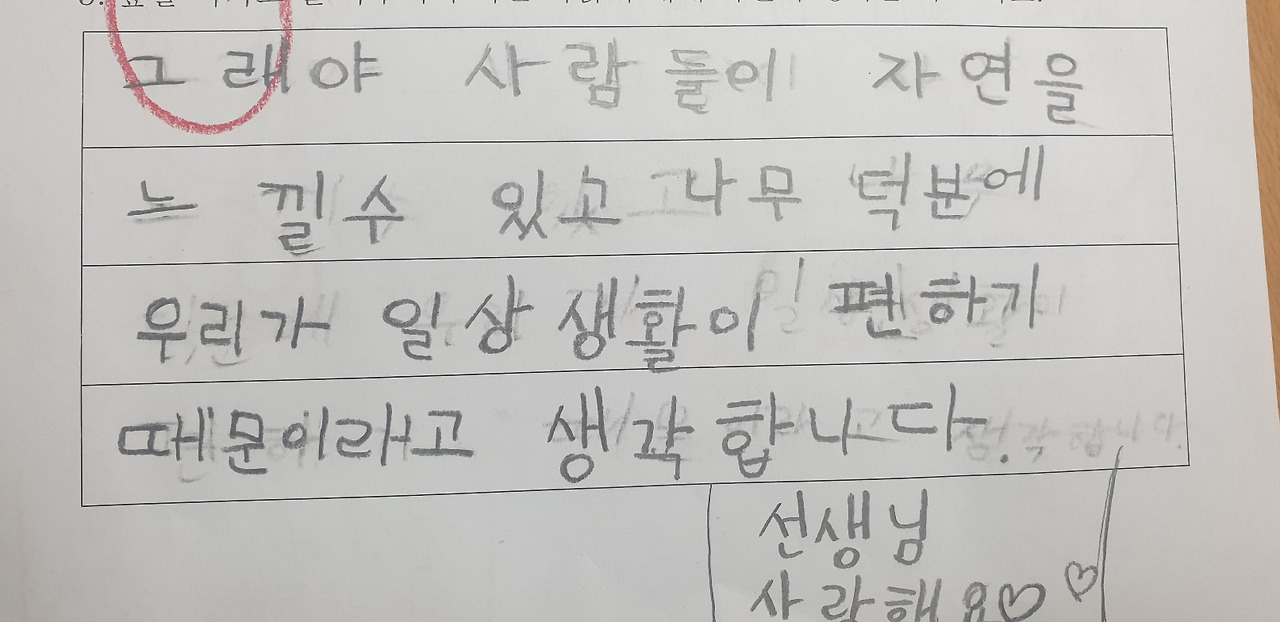 그래야 사람들이 자연을
느낄수 있고 나무 턱분에
우리가 일상생활이 편하기
때문이라고 생각합니다.
선생님
사랑해요♡♡